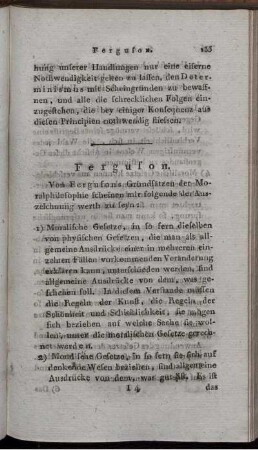 Ferguson. 135
hung unserer Handlungen nur eine eiserne
Nothwendigkeit gelten zu lassen, den Deter-
minismus mit Scheingründen zu bewaff-
nen, und alle die schrecklichen Folgen ein-
zugestehen, die bey einiger Konsequenz aus
diesen Principien nothwendig fliessen.
Ferguson.
Von Fergusons Grundsätzen der Mo-
ralphilosophie scheinen mir folgende der Aus-
zeichnung werth zu seyn:
1) Moralische Gesetze, in so fern dieselben
von physischen Gesetzen, die man als all-
gemeine Ausdrücke einer in mehreren ein-
zelnen Fällen vorkommenden Veränderung
erklären kann, unterschieden werden, sind
allgemeine Ausdrücke von dem, was ge-
schehen soll. In diesem Verstande müssen
die Regeln der Kunst, die Regeln der
Schönheit und Schicklichkeit, sie mögen
sich beziehen auf welche Sache sie wol-
len, unter die moralischen Gesetze gerech-
net werden.
2) Moralische Gesetze, in so fern sie sich auf
denkende Wesen beziehen, sind allgemeine
Ausdrücke von dem, was gut ist. Es ist
I 4 das